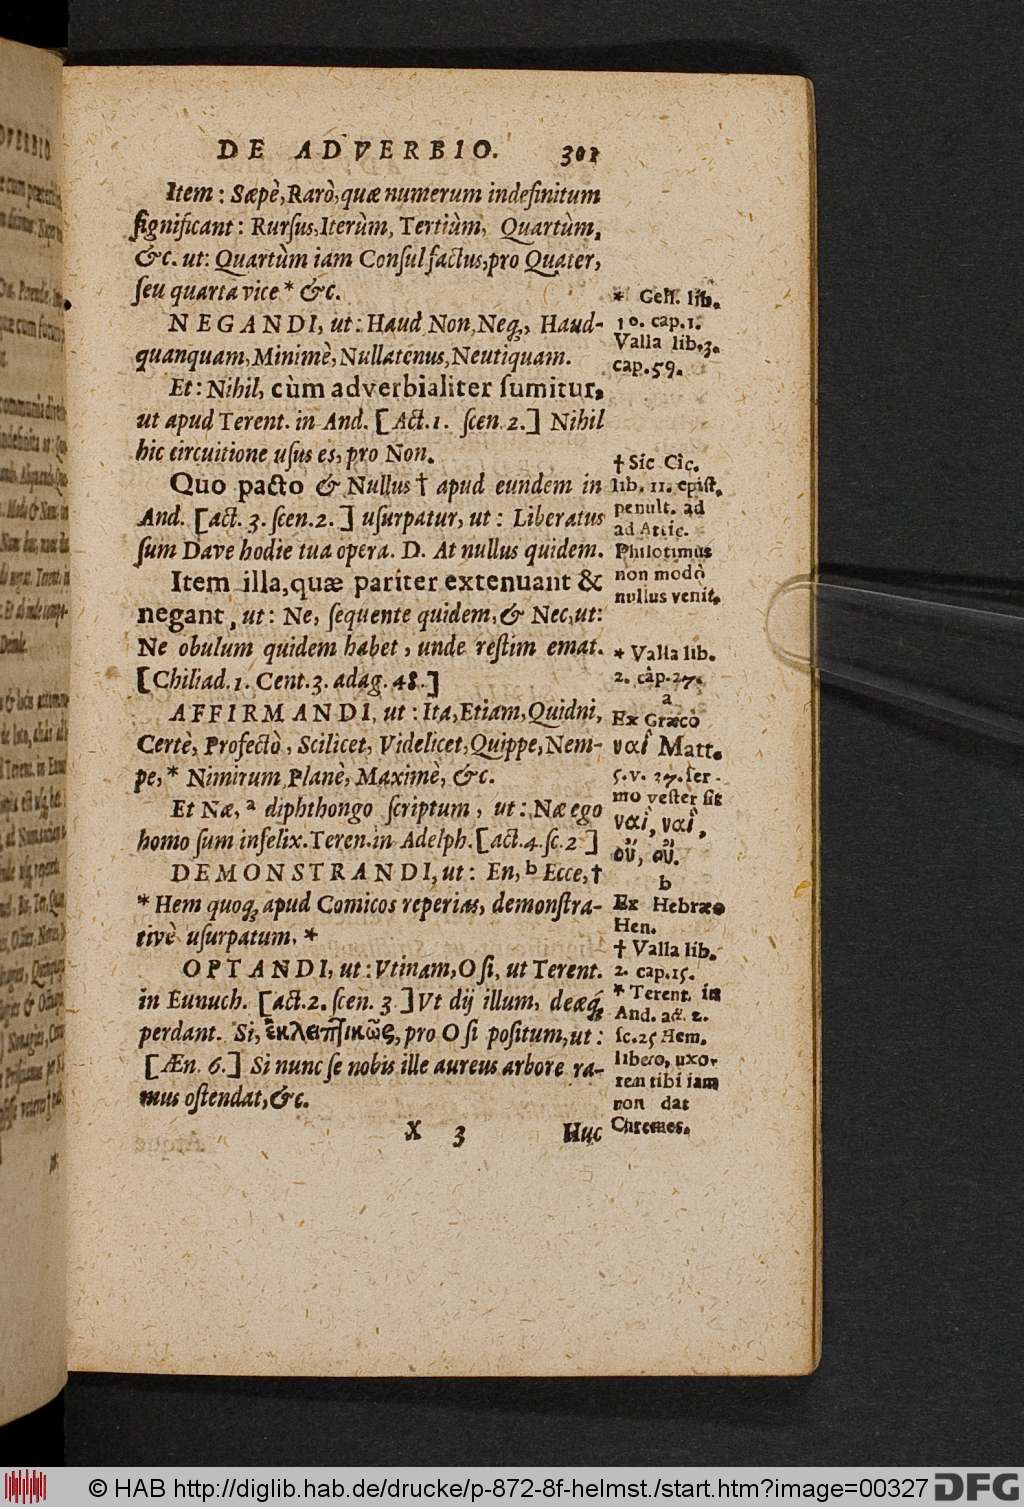 DE ADVERBIO. 301
Item: Sæpè, Rarò, quæ numerum indefinitum
significant: Rursus, Iterùm, Tertiùm, Quartùm,
&c. ut: Quartùm iam Consul factus, pro Quater,
seu quarta vice * &c.
NEGANDI, ut: Haud Non, Neq;, Haud-
quanquam, Minimè, Nullatenus, Neutiquam.
Et: Nihil, cùm adverbialiter sumitur,
ut apud Terent. in And. [Act. 1. scen. 2.] Nihil
hic circuitione usus es, pro Non.
Quo pacto & Nullus † apud eundem in
And. [act. 3. scen. 2.] usurpatur, ut: Liberatus
sum Dave hodie tua opera. D. At nullus quidem.
Item illa, quæ pariter extenuant &
negant, ut: Ne, sequente quidem, & Nec, ut:
Ne obulum quidem habet, unde restim emat.
[Chiliad. 1. Cent. 3. adag. 48.]
AFFIRMANDI, ut: Ita, Etiam, Quidni,
Certè, Profectò, Scilicet, Videlicet, Quippe, Nem-
pe, * Nimirum Planè, Maximè, &c.
Et Næ, a diphthongo scriptum, ut: Næ ego
homo sum infelix. Teren. in Adelph. [act. 4. sc. 2]
DEMONSTRANDI, ut: En, b Ecce, †
* Hem quoq; apud Comicos reperias, demonstra-
tivè usurpatum. *
OPTANDI, ut: Vtinam, O si, ut Terent.
in Eunuch. [act. 2. scen. 3] Vt dij illum, deæq;
perdant. Si, ἐκλειπτικῶς, pro O si positum, ut:
[Æn. 6.] Si nunc se nobis ille aureus arbore ra-
mus ostendat, &c.
X 3 Huc
* Gell. lib.
10. cap. 1.
Valla lib. 3.
cap. 59.
† Sic Cic.
lib. 11. epist.
penult. ad
ad Attic.
Philotimus
non modò
nullus venit.
* Valla lib.
2. cap. 27.
a
Ex Græco
ναὶ Matt.
5. v. 37. ser-
mo vester sit
ναὶ, ναὶ,
οὔ, οὔ.
b
Ex Hebræo
Hen.
† Valla lib.
2. cap. 15.
* Terent. in
And. act. 2.
sc. 25 Hem.
libero, uxo-
rem tibi iam
non dat
Chremes.
© HAB http://diglib.hab.de/drucke/p-872-8f-helmst./start.htm?image=00327
DFG